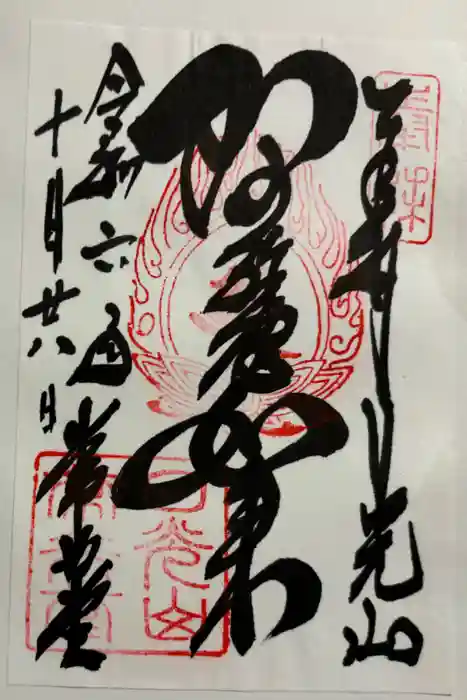 奉拝 日光山
阿弥陀如来
令和六年 常行堂
十月廿八日